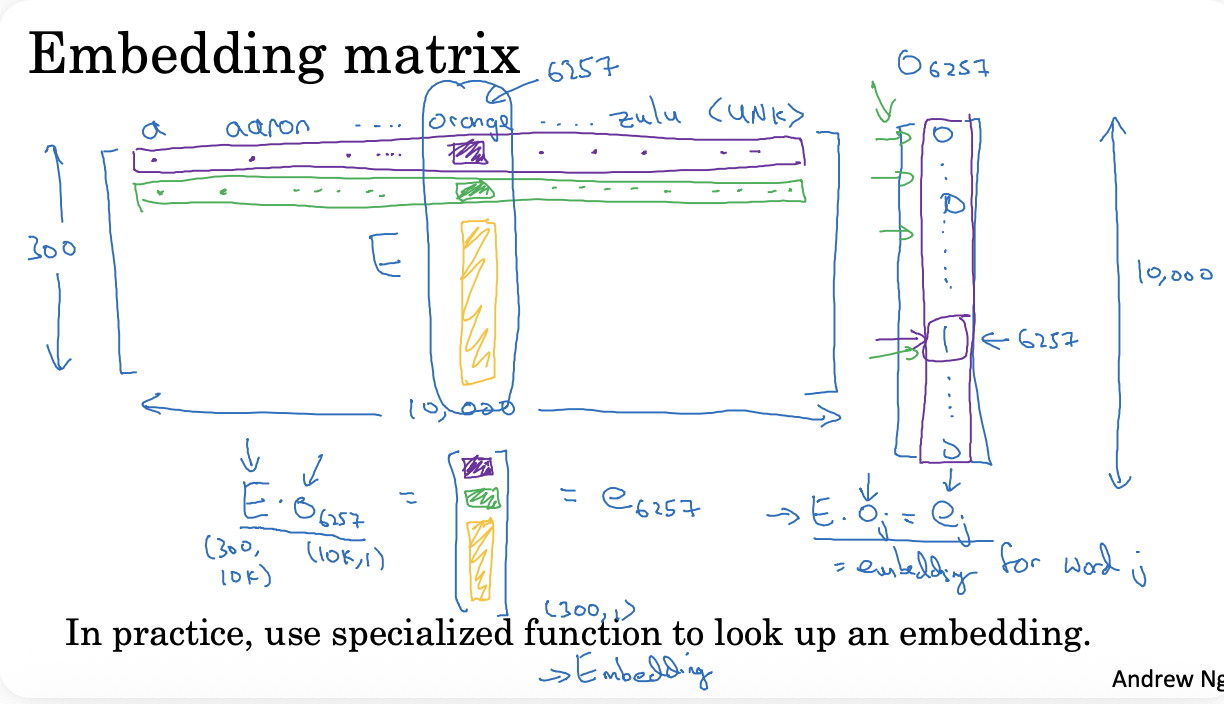 Embedding matrix
6257
O6257
a aaron .... orange .... zulu <UNK>
300
E
0
0
10,000
1 ← 6257
0
10,000
E · O6257 = = e6257
(300, 10K) (10K,1)
(300,1)
→ E · oj = ej
= embedding for word j
In practice, use specialized function to look up an embedding.
→ Embedding
Andrew Ng